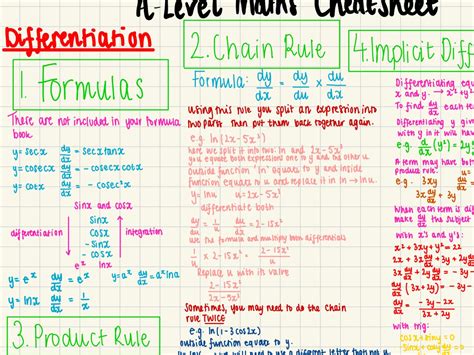 A-Level Maths Cheatsheet
Differentiation
1. Formulas
These are not included in your formula
book.
y=secx dy/dx = secxtanx
y=cosecx dy/dx = -cosecxcotx
y=cotx dy/dx = -cosec²x
Sinx and cosx
Sinx
cosx
-sinx
-cosx
Sinx
differentiation
integration
y=eˣ dy/dx = eˣ
y=aˣ dy/dx = aˣlna
y=lnx dy/dx = 1/x
3. Product Rule
2. Chain Rule
Formula: dy/dx = dy/du × du/dx
Using this rule you split an expression into
two parts then put them back together again.
e.g. ln(2x-5x²)
here we split it into two: ln and 2x-5x²
you equate both expressions one to y and the other u
outside function 'ln' equals to y and inside
function equates to u and replace it in ln → lnu.
y=lnu u=2x-5x²
differentiate both
dy/du = 1/u du/dx = 2-15x²
Use the formula and multiply both differentials
1/u × 2-15x² = 2-15x²/u
Replace u with its value
2-15x²
2x-5x²
Sometimes, you may need to do the chain
rule TWICE
e.g. ln(1-3cos2x)
outside function equates to y.
4. Implicit Diff
Differentiating equ
x and y. → x²+y²
To find dy/dx each te
Differentiating y give
with y in it will hav
A term may have bo
product rule.
e.g. 3xy
When each term is dif
make dy/dx the subject
With x's and y's:
x²+3xy+y²=22
2x+3x dy/dx + 3y + 2y
dy/dx (3x+2y) = -3y-2x
dy/dx = -3y-2x / 3x+2y
with trig:
cosx+siny=0
-Sinx+cosy dy/dx = 0